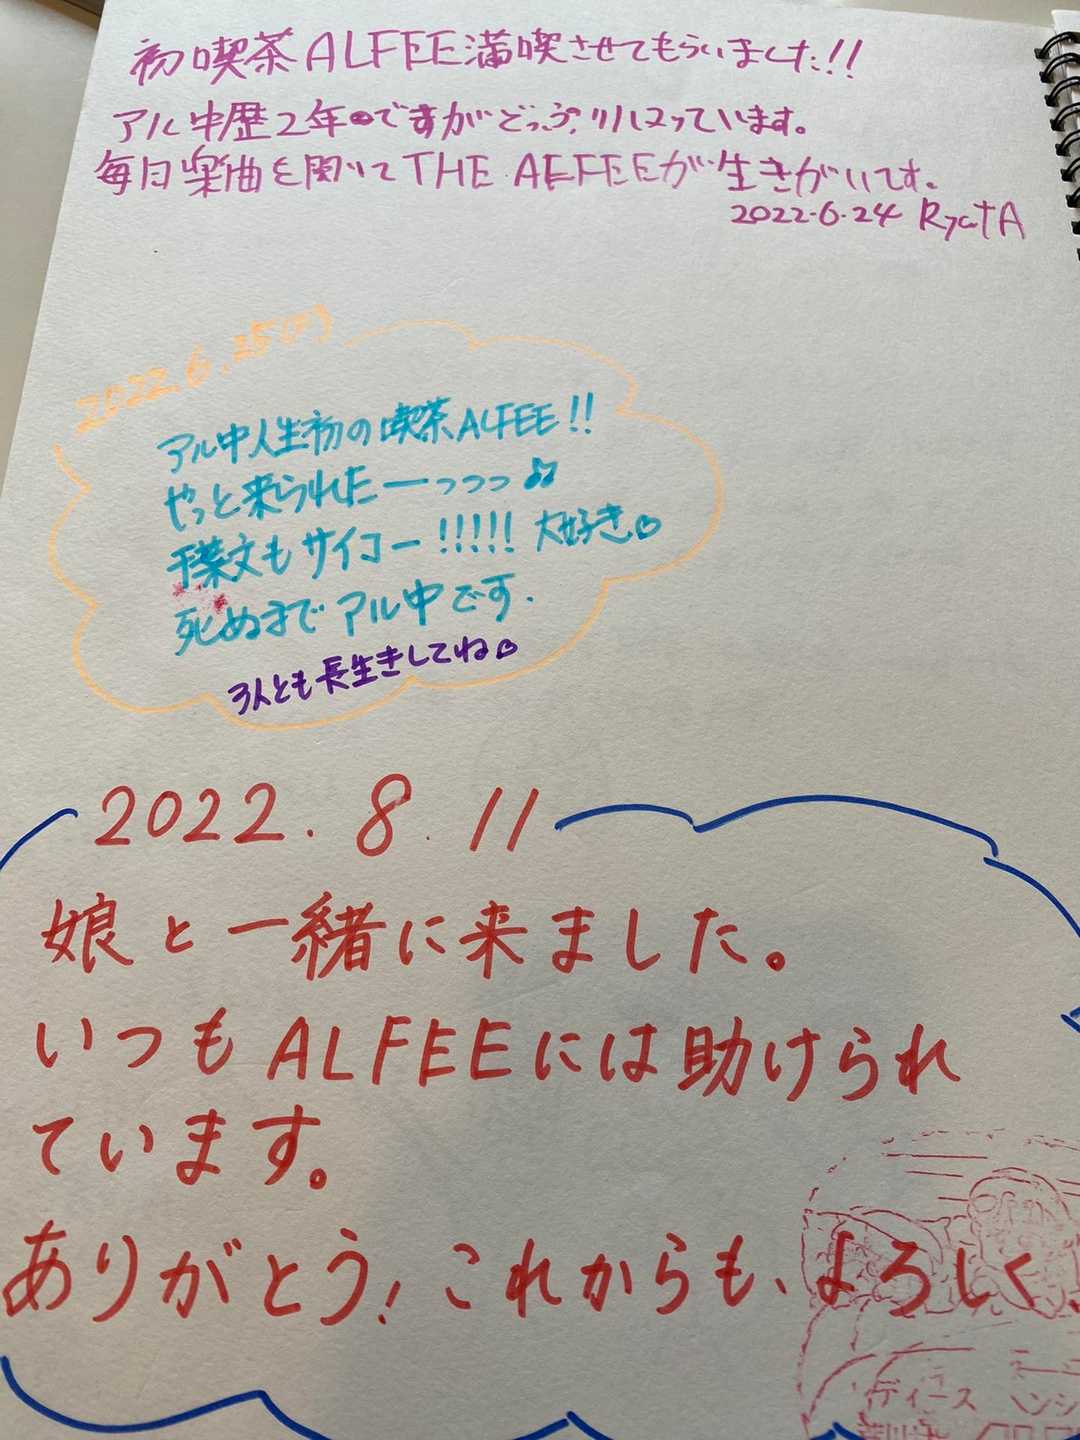 初喫茶ALFEE満喫させてもらいました!!
アル中歴2年のですがどっぷりハマっています。
毎日楽曲を聞いてTHE ALFEEが生きがいです。
2022.6.24 RyotA
2022.6.25(土)
アル中人生初の喫茶ALFEE!!
やっと来られたーっっっ♫
千葉文もサイコー!!!!! 大好き♡
死ぬまでアル中です.
3人とも長生きしてね♡
2022. 8. 11
娘と一緒に来ました。
いつもALFEEには助けられ
ています。
ありがとう! これからも、よろしく
ディース